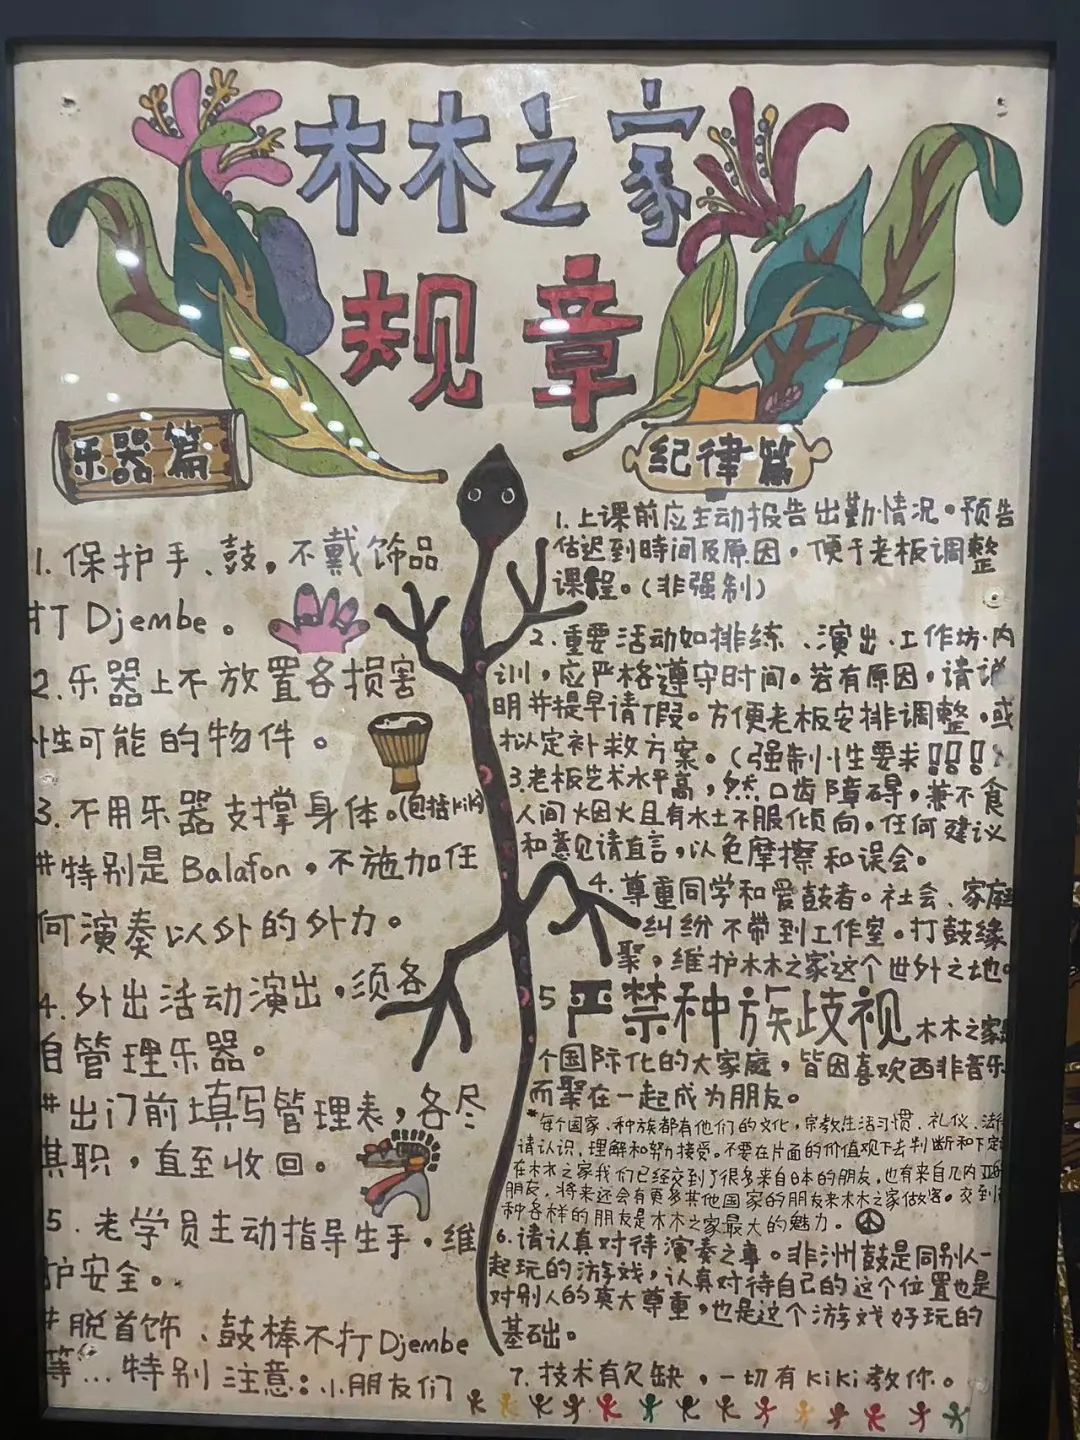 木木之家
规章
乐器篇
1. 保护手、鼓，不戴饰品
打 Djembe。
2. 乐器上不放置各损害
性可能的物件。
3. 不用乐器支撑身体。(包括KiKi
#特别是 Balafon，不施加任
何演奏以外的外力。
4. 外出活动演出，须各
自管理乐器。
#出门前填写管理表，各尽
其职，直至收回。
5. 老学员主动指导生手，维
护安全。
#脱首饰、鼓棒不打Djembe
等...特别注意：小朋友们
纪律篇
1. 上课前应主动报告出勤情况。预告
估迟到時间及原因，便于老板调整
课程。(非强制)
2. 重要活动如排练、演出、工作坊、内
训，应严格遵守时间。若有原因，请说
明并提早请假。方便老板安排调整。或
拟定补救方案。(强制性要求!!!!)
3. 老板艺术水平高，然口齿障碍，兼不食
人间烟火且有水土不服倾向，任何建议
和意见请直言，以免摩擦和误会。
4. 尊重同学和爱鼓者。社会、家庭
纠纷不带到工作室。打鼓缘
聚，维护木木之家这个世外之地。
5 严禁种族歧视 木木之家是
个国际化的大家庭，皆因喜欢西非音乐
而聚在一起成为朋友。
*每个国家、种族都有他们的文化，宗教生活习惯、礼仪、法律
请认识、理解和努力接受。不要在片面的价值观下去判断和下定
在木木之家我们已经交到了很多来自日本的朋友，也有来自几内亚的
朋友，将来还会有更多其他国家的朋友来木木之家做客。交到
种各样的朋友是木木之家最大的魅力。
6. 请认真对待演奏之事。非洲鼓是同别人一
起玩的游戏，认真对待自己的这个位置也是
对别人的莫大尊重，也是这个游戏好玩的
基础。
7. 技术有欠缺，一切有KiKi教你。